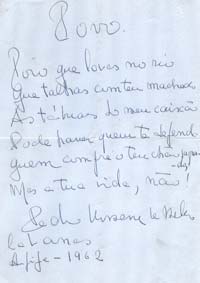 Povo.
Povo que lavas no rio
Que talhas com teu machado
As tábuas do meu caixão
Pode haver quem te defenda
Quem compre o teu chão sagra-
do,
Mas a tua vida, não!
Pedro Homem de Mello
Cabanas
Afife - 1962